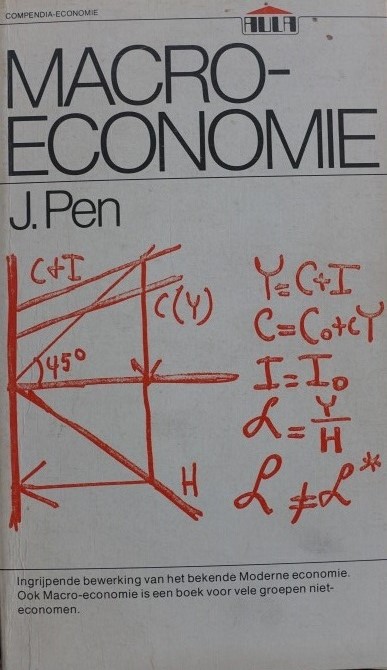 COMPENDIA-ECONOMIE
AULA
MACRO-
ECONOMIE
J. Pen
C+I
C(Y)
45°
H
Y=C+I
C=C₀+cY
I=I₀
L=Y/H
L≠L*
Ingrijpende bewerking van het bekende Moderne economie.
Ook Macro-economie is een boek voor vele groepen niet-
economen.